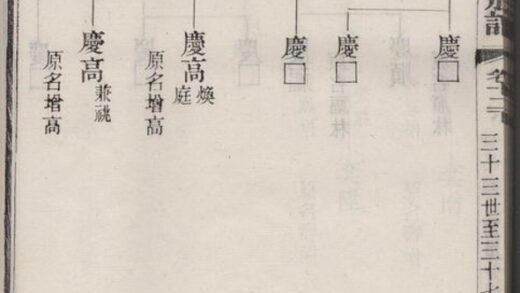 卷十二 三十三世至三十七
慶□
慶□
慶□
慶高 煥庭
原名增高
慶高 兼祧
原名增高